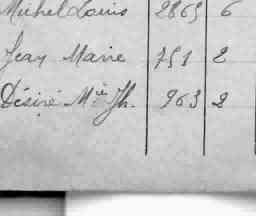 Michel Louis 2865 6
Jean Marie 751 2
Désiré Mie Jh. 963 2